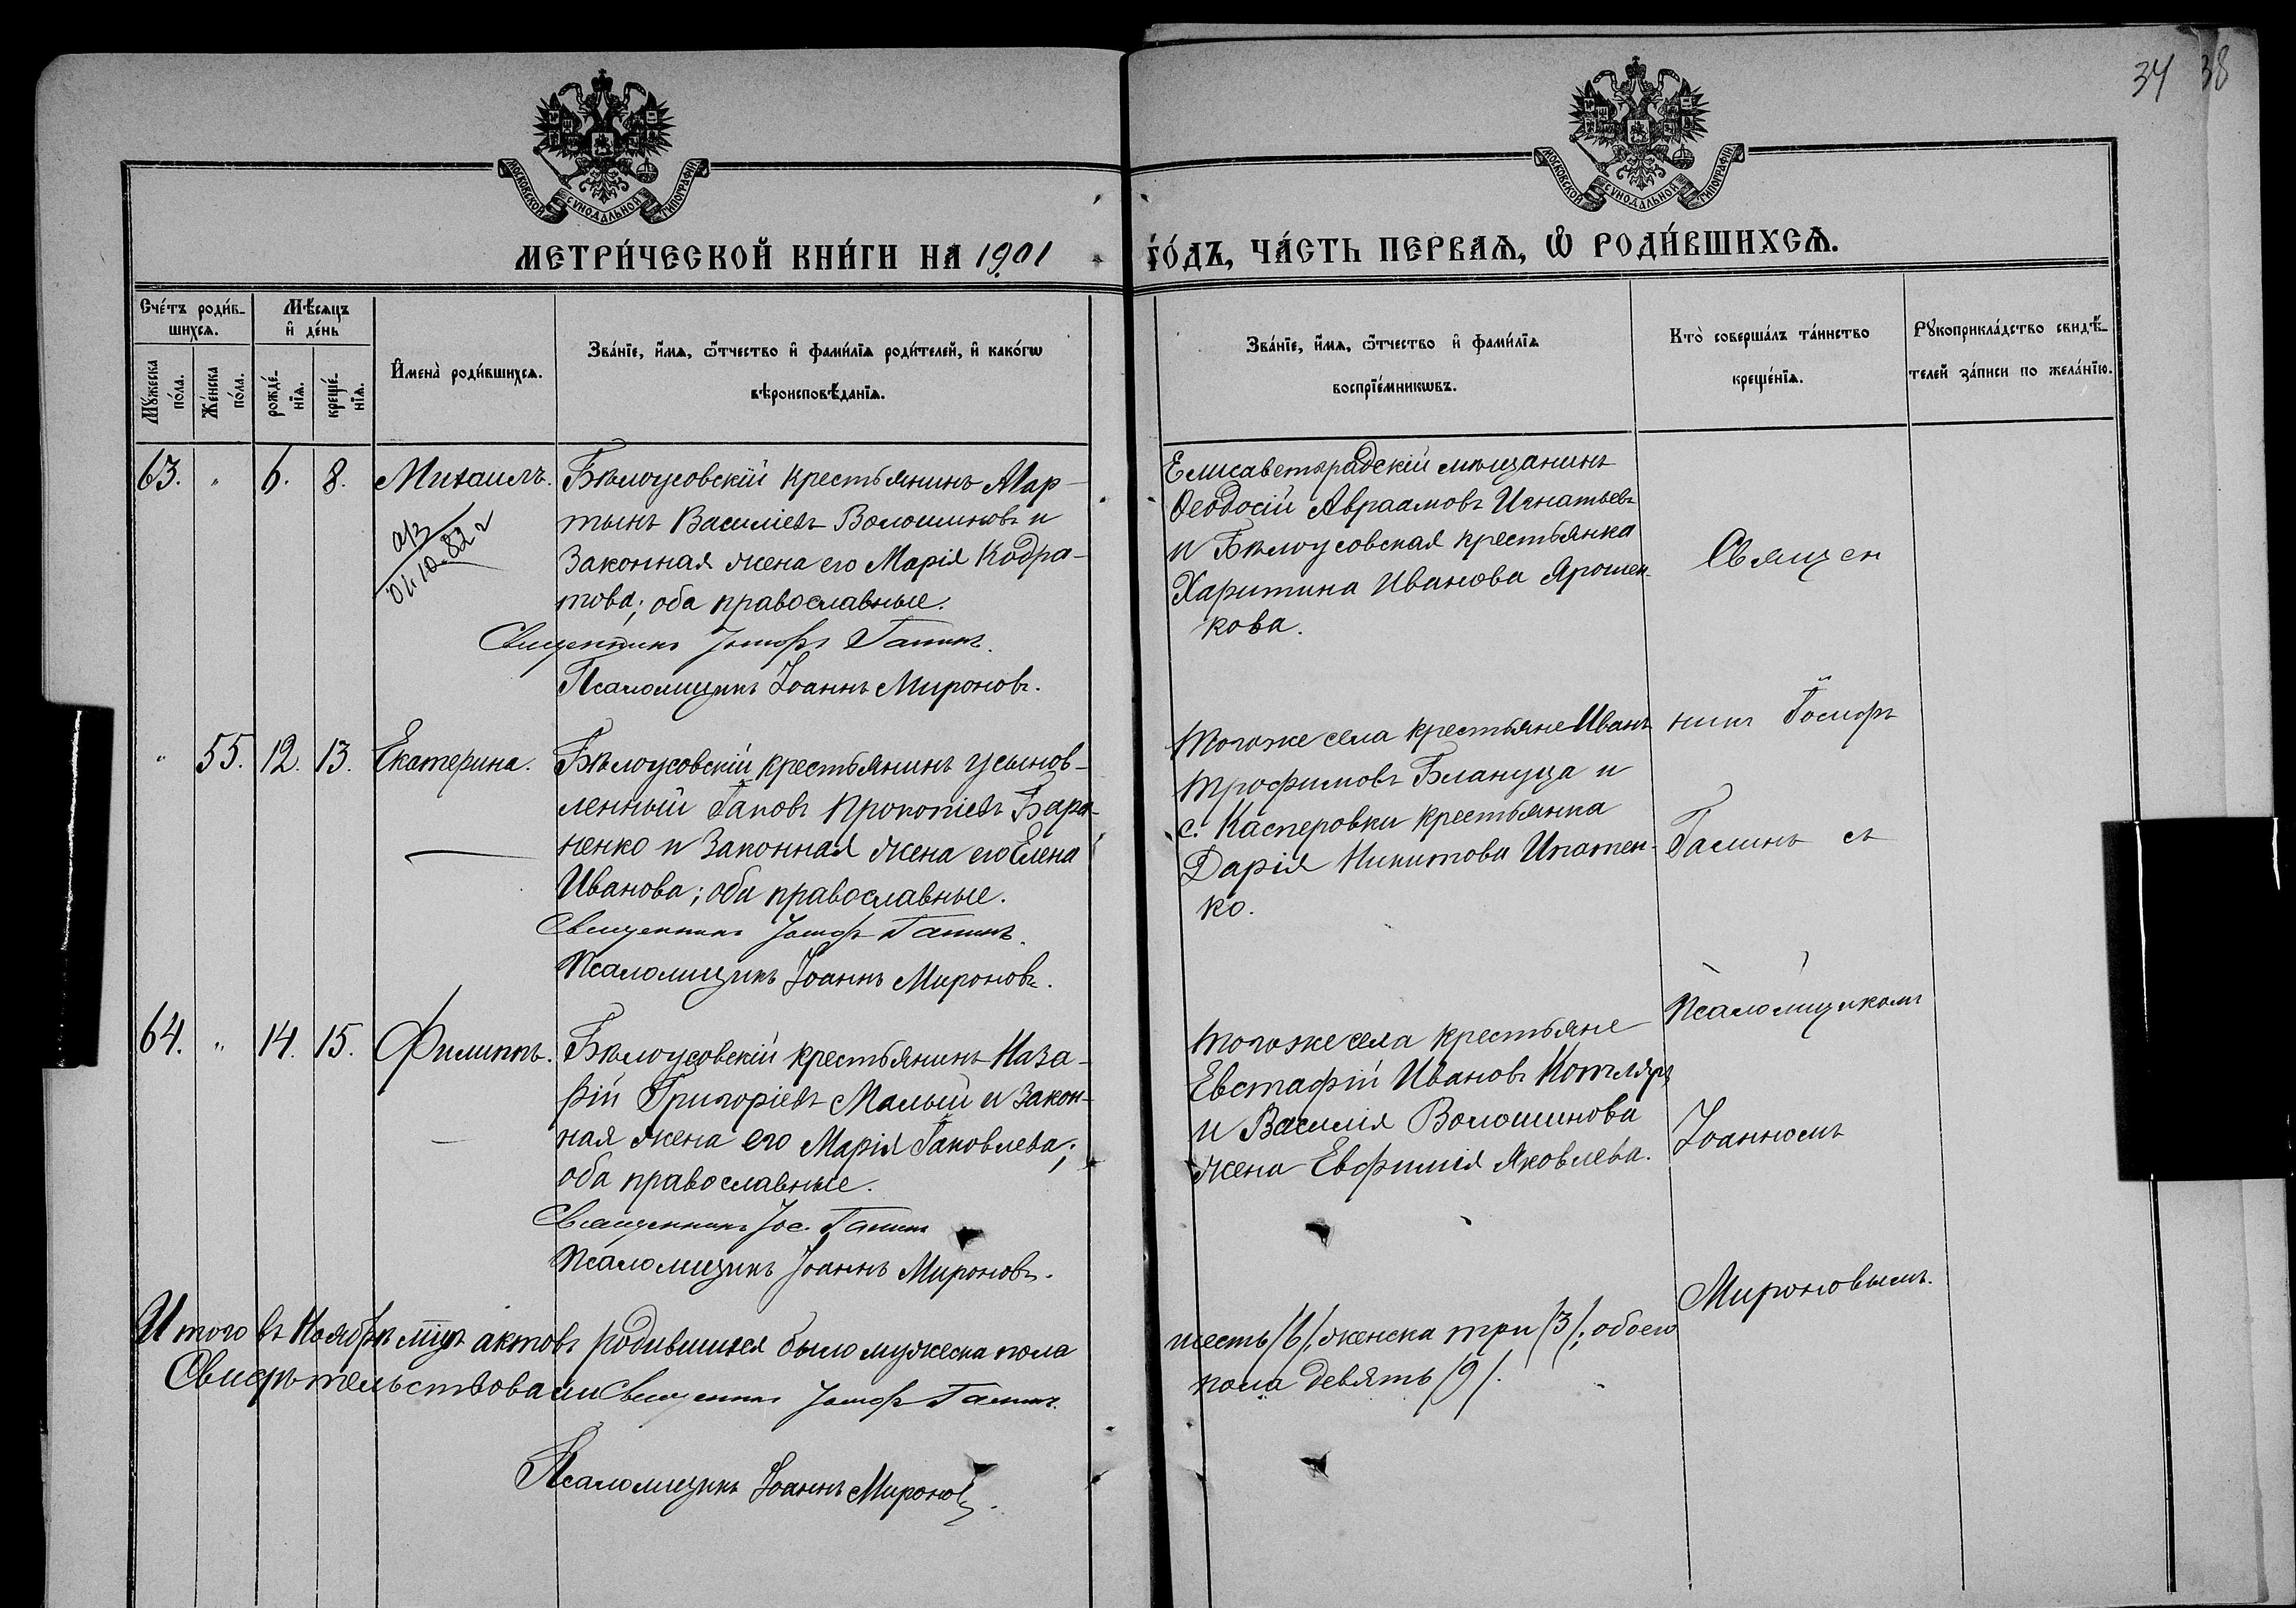 34 38
МОСКОВСКОЙ СѴНОДАЛЬНОЙ ТИПОГРАФІИ
МОСКОВСКОЙ СѴНОДАЛЬНОЙ ТИПОГРАФІИ
МЕТРИ́ЧЕСКОЙ КНИ́ГИ НА 1901
го́дъ, ЧА́СТЬ ПЕРВАѦ, Ѿ РОДИ́ВШИХСѦ.
Сче́тъ роди́в-
шихсѧ.
Мꙋ́жеска
по́ла.
Же́нска
по́ла.
Мѣ́сѧцъ
и҆ де́нь
рожде́-
нїѧ.
креще́-
нїѧ.
И҆мена̀ роди́вшихсѧ.
Зва́нїе, и҆́мѧ, ѻ҆́тчество и҆ фами́лїѧ роди́телей, и҆ како́гѡ
вѣроисповѣ́данїѧ.
Зва́нїе, и҆́мѧ, ѻ҆́тчество и҆ фами́лїѧ
воспрїе́мникѡвъ.
Кто̀ соверша́лъ та́инство
креще́нїѧ.
Рꙋкоприкла́дство свидѣ́-
телей за́писи по жела́нїю.
63. " 6. 8. Михаилъ.
01.10.82 г
Бѣлоусовскій крестьянинъ Мар-
тынъ Василіевъ Волошиновъ и
законная жена его Марія Кодра-
това; оба православные.
Священникъ Іосифъ Галинъ.
Псаломщикъ Іоаннъ Мироновъ.
Елисаветградскій мѣщанинъ
Ѳеодосій Авраамовъ Игнатьевъ
и Бѣлоусовская крестьянка
Харитина Иванова Ярошен-
кова.
Священ
" 55. 12. 13. Екатерина.
Бѣлоусовскій крестьянинъ усынов-
ленный Іаковъ Прокопіевъ Бара-
ненко и законная жена его Елена
Иванова; оба православные.
Священникъ Іосифъ Галинъ.
Псаломщикъ Іоаннъ Мироновъ.
тогоже села крестьяне Иванъ
Трофимовъ Блануца и
с. Касперовки крестьянка
Дарія Никитова Ипатен-
ко.
никъ Іосифъ
Галинъ съ
64. " 14. 15. Филиппъ.
Бѣлоусовскій крестьянинъ Наза-
рій Григоріевъ Малый и закон-
ная жена его Марія Іаковлева;
оба православные.
Священникъ Іос. Галинъ
Псаломщикъ Іоаннъ Мироновъ.
тогоже села крестьяне
Евстафій Ивановъ Котляръ
и Василія Волошинова
жена Евфимія Яковлева.
Псаломщикомъ
Іоанномъ
Мироновымъ.
Итого въ Ноябрѣ мцѣ актовъ родившихся было мужеска пола
шесть /6/, женска три /3/; обоего
пола девять /9/.
Свидѣтельствовали Священникъ Іосифъ Галинъ.
Псаломщикъ Іоаннъ Мироновъ.